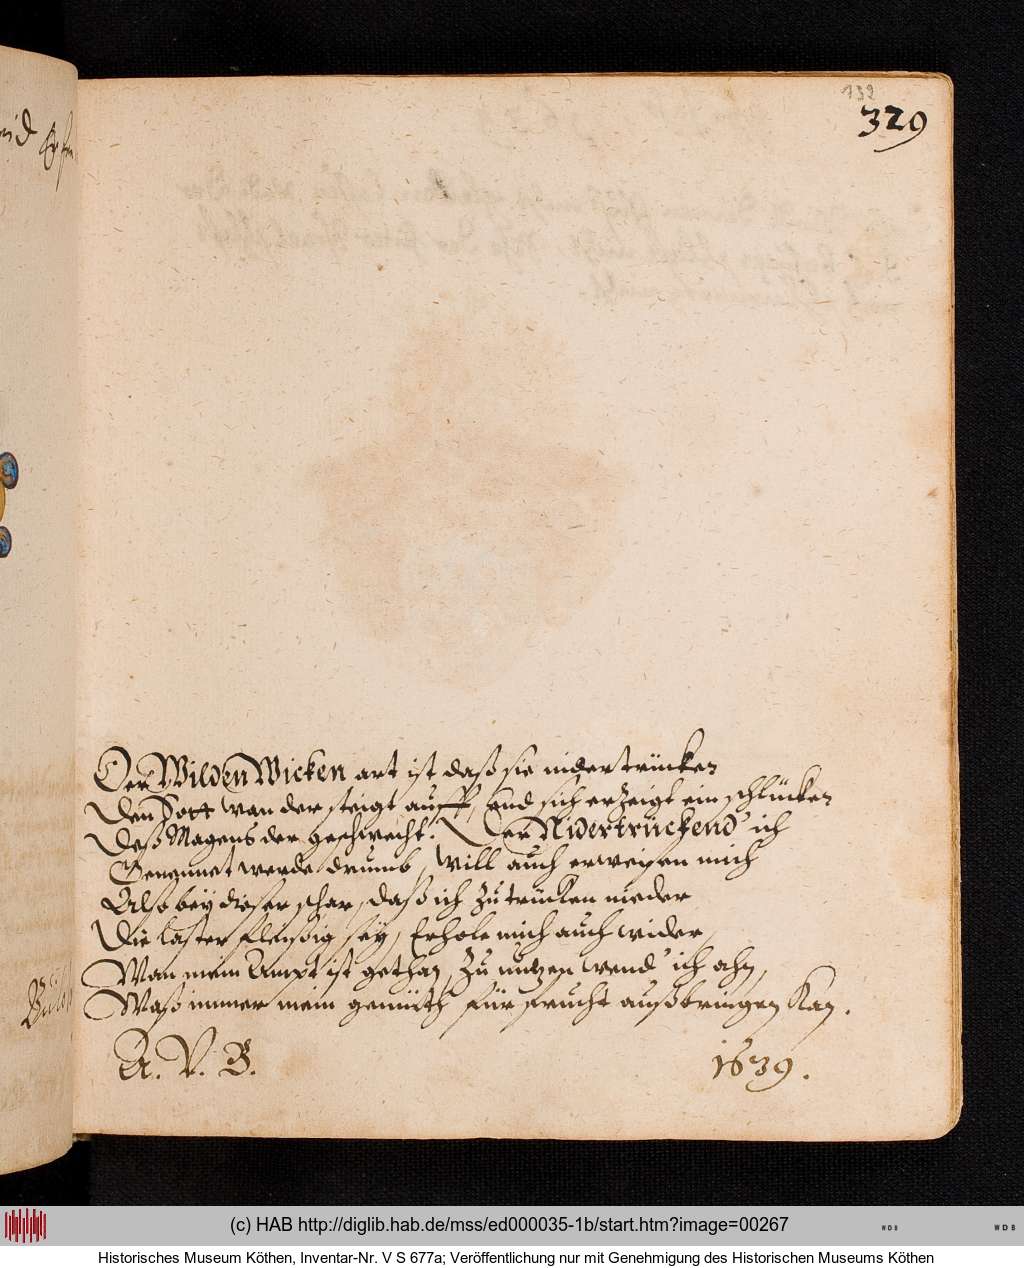 132
329
Der Wilden Wicken art ist daß sie nidertrücken
Den Sott wan der steigt auff, und sich erzeigt ein schlücken
Deß Magens der geschwecht. Der Nidertrückend' ich
Genennet werde drumb, will auch erweisen mich
Also bey dieser schar, daß ich zu trücken nieder
Die laster fleissig sey, Erhole mich auch wider,
Wan mein Ampt ist gethan, zu nutzen wend' ich ahn,
Waß immer mein gemüth für frucht außbringen kan.
A. V. B.
1639.
(c) HAB http://diglib.hab.de/mss/ed000035-1b/start.htm?image=00267
WDB
WDB
Historisches Museum Köthen, Inventar-Nr. V S 677a; Veröffentlichung nur mit Genehmigung des Historischen Museums Köthen